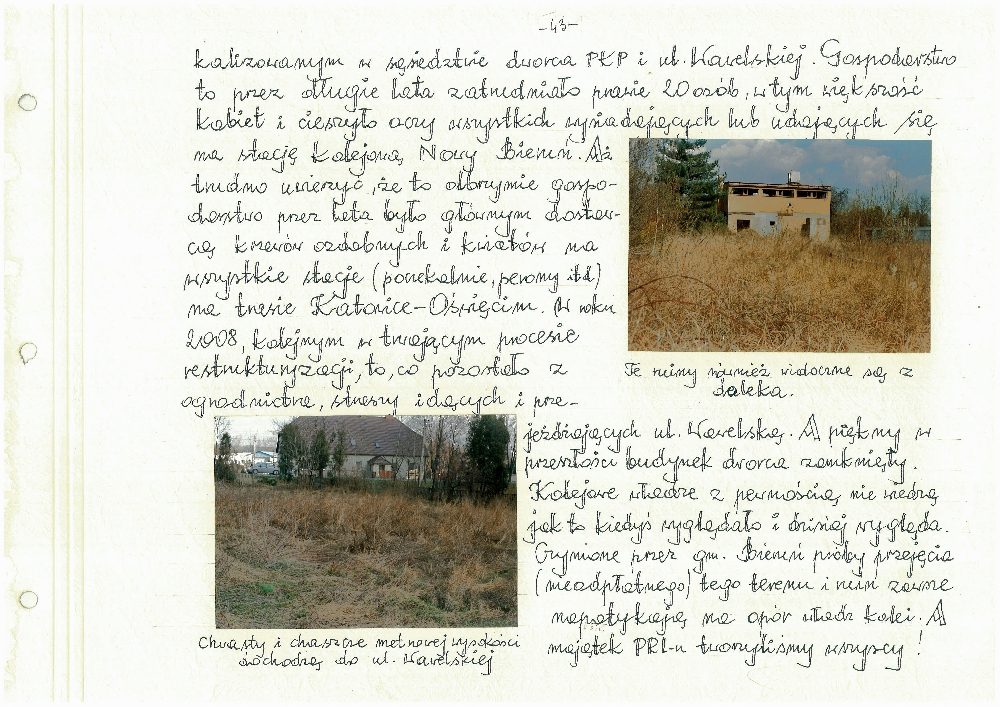 -43-
kalizowanym w sąsiedztwie dworca PKP i ul. Wawelskiej. Gospodarstwo
to przez długie lata zatrudniało prawie 20 osób, w tym większość
kobiet i cieszyło oczy wszystkich wysiadających lub udających się
na stację kolejową Nowy Bieruń. Aż
trudno uwierzyć, że to olbrzymie gospo-
darstwo przez lata było głównym dostaw-
cą krzewów ozdobnych i kwiatów na
wszystkie stacje (poczekalnie, perony itd)
na trasie Katowice-Oświęcim. W roku
2008, kolejnym w trwającym procesie
restrukturyzacji, to, co pozostało z
ogrodnictwa, straszy idących i prze-
Te ruiny również widoczne są z
daleka.
jeżdżających ul. Wawelską. A piękny w
przeszłości budynek dworca zamknięty.
Kolejowe władze z pewnością nie wiedzą
jak to kiedyś wyglądało i dzisiaj wygląda.
Czynione przez gm. Bieruń próby przejęcia
(nieodpłatnego) tego terenu i ruin zawsze
napotykają na opór władz kolei. A
majątek PRL-u tworzyliśmy wszyscy!
Chwasty i chaszcze metrowej wysokości
dochodzą do ul. Wawelskiej